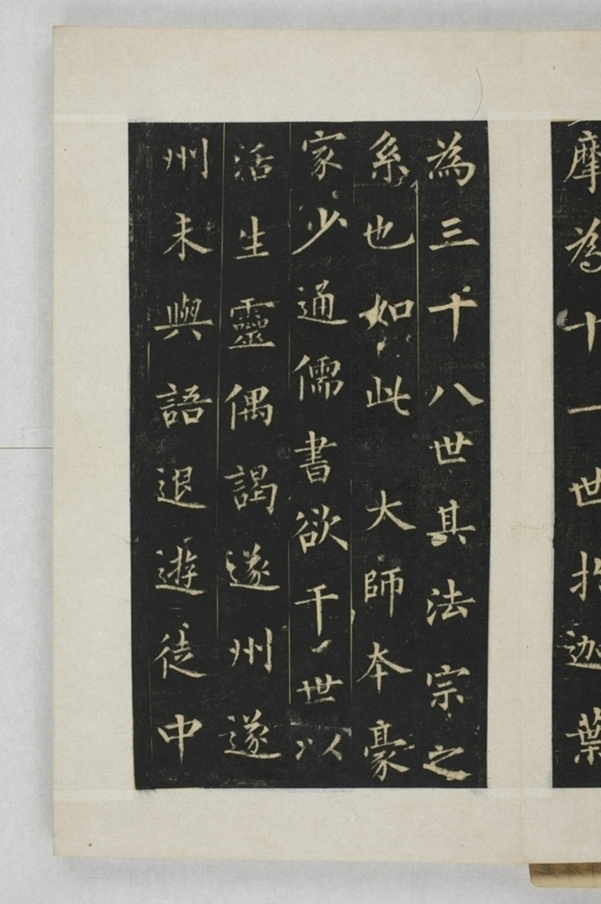 摩為十一世指迦葉
為三十八世其法宗之
系也如此大師本豪
家少通儒書欲干世以
活生靈偶謁遂州遂
州未與語退遊徒中